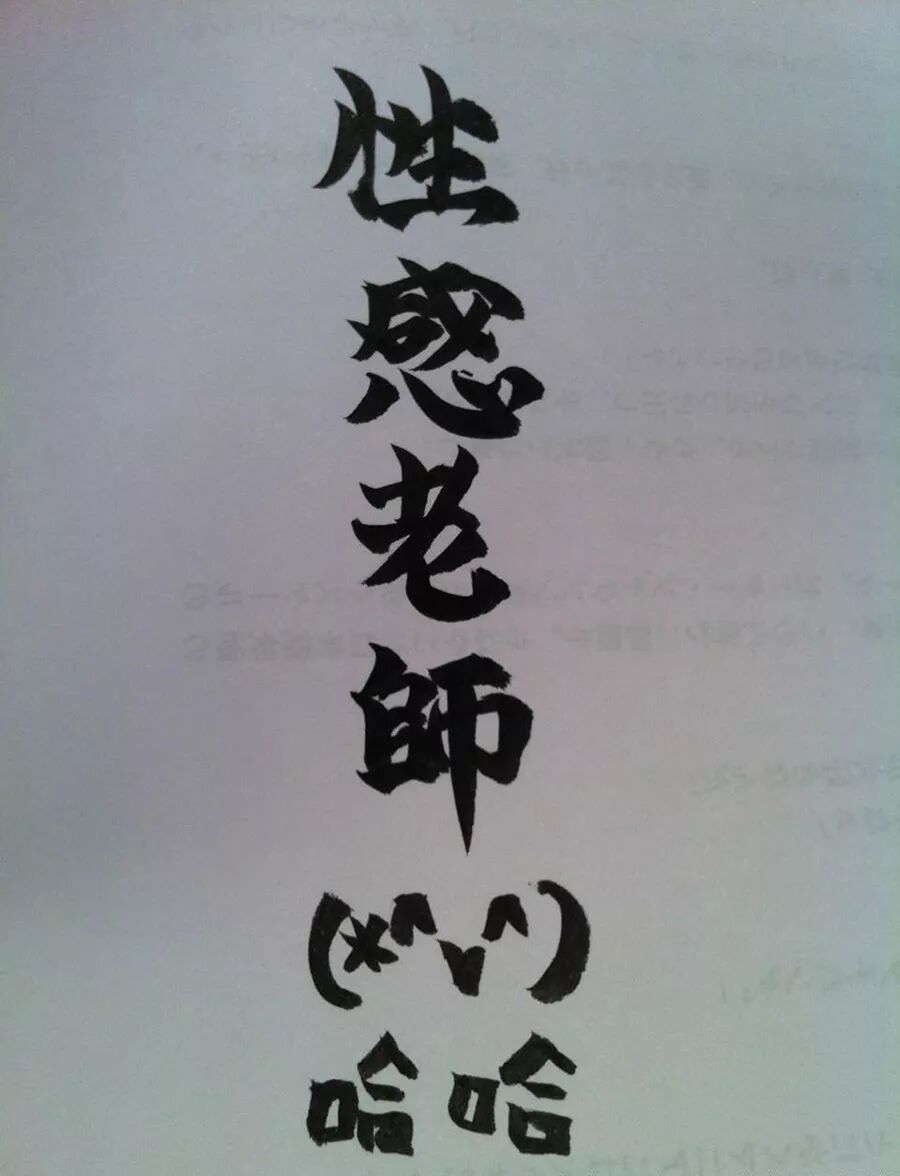 性感老師
(*^v^)
哈哈